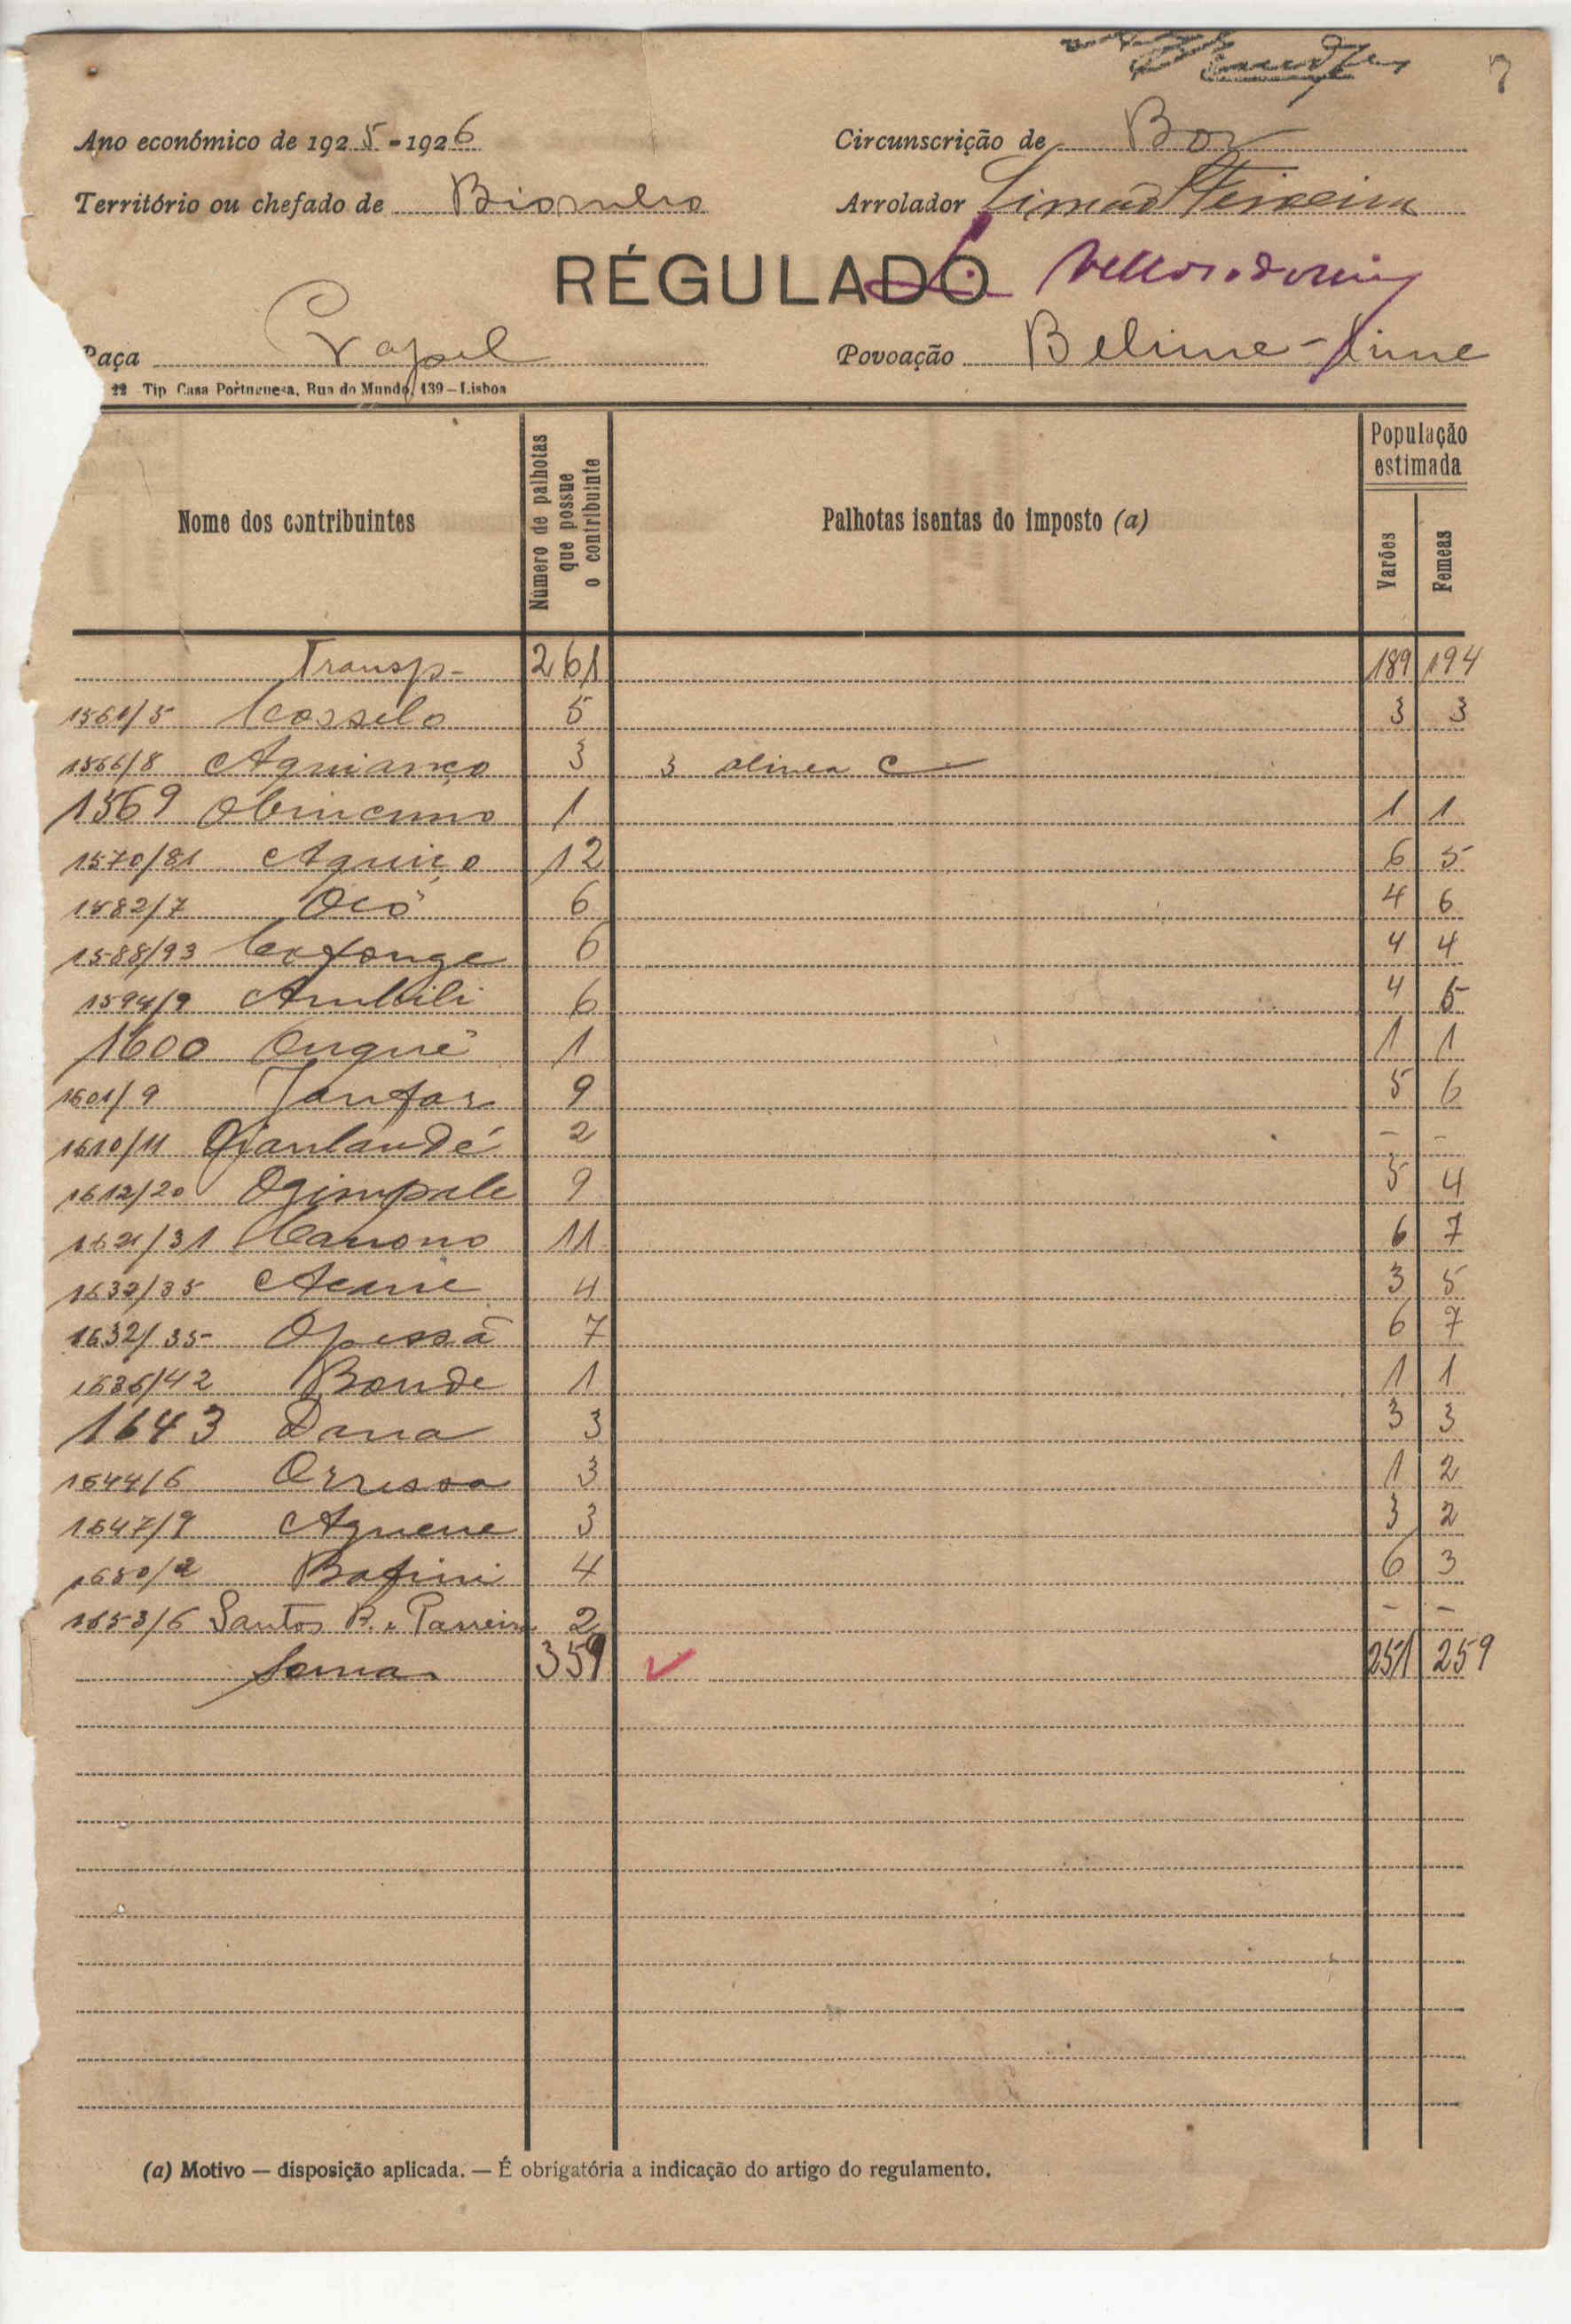 7
Ano económico de 1925-1926
Circunscrição de Bor
Território ou chefado de Biombo
Arrolador Simão Teixeira
RÉGULADO
Raça Papel
Povoação Belime-Lime
22 Tip Casa Portuguesa, Rua do Mundo, 139—Lisboa
Nome dos contribuintes
Número de palhotas que possue o contribuinte
Palhotas isentas do imposto (a)
População estimada
Varões
Femeas
Transp- 261 189 194
1561/5 Cosselo 5 3 3
1566/8 Aguianço 3 3 alinea C
1569 1 1 1
1570/81 Aguiço 12 6 5
1582/7 Ocó 6 4 6
1588/93 Cafonge 6 4 4
1594/9 Ambili 6 4 5
1600 Ongué 1 1 1
1601/9 Janfar 9 5 6
1610/11 2 - -
1612/20 Ogimpale 9 5 4
1621/31 Canono 11 6 7
1632/35 Acane 4 3 5
1632/35 Opessã 7 6 7
1636/42 Bonde 1 1 1
1643 Dana 3 3 3
1644/6 Orressa 3 1 2
1647/9 Aguene 3 3 2
1650/2 Bafini 4 6 3
1653/6 Santos B. Parreira 2 - -
Soma 359 251 259
(a) Motivo — disposição aplicada. — É obrigatória a indicação do artigo do regulamento.